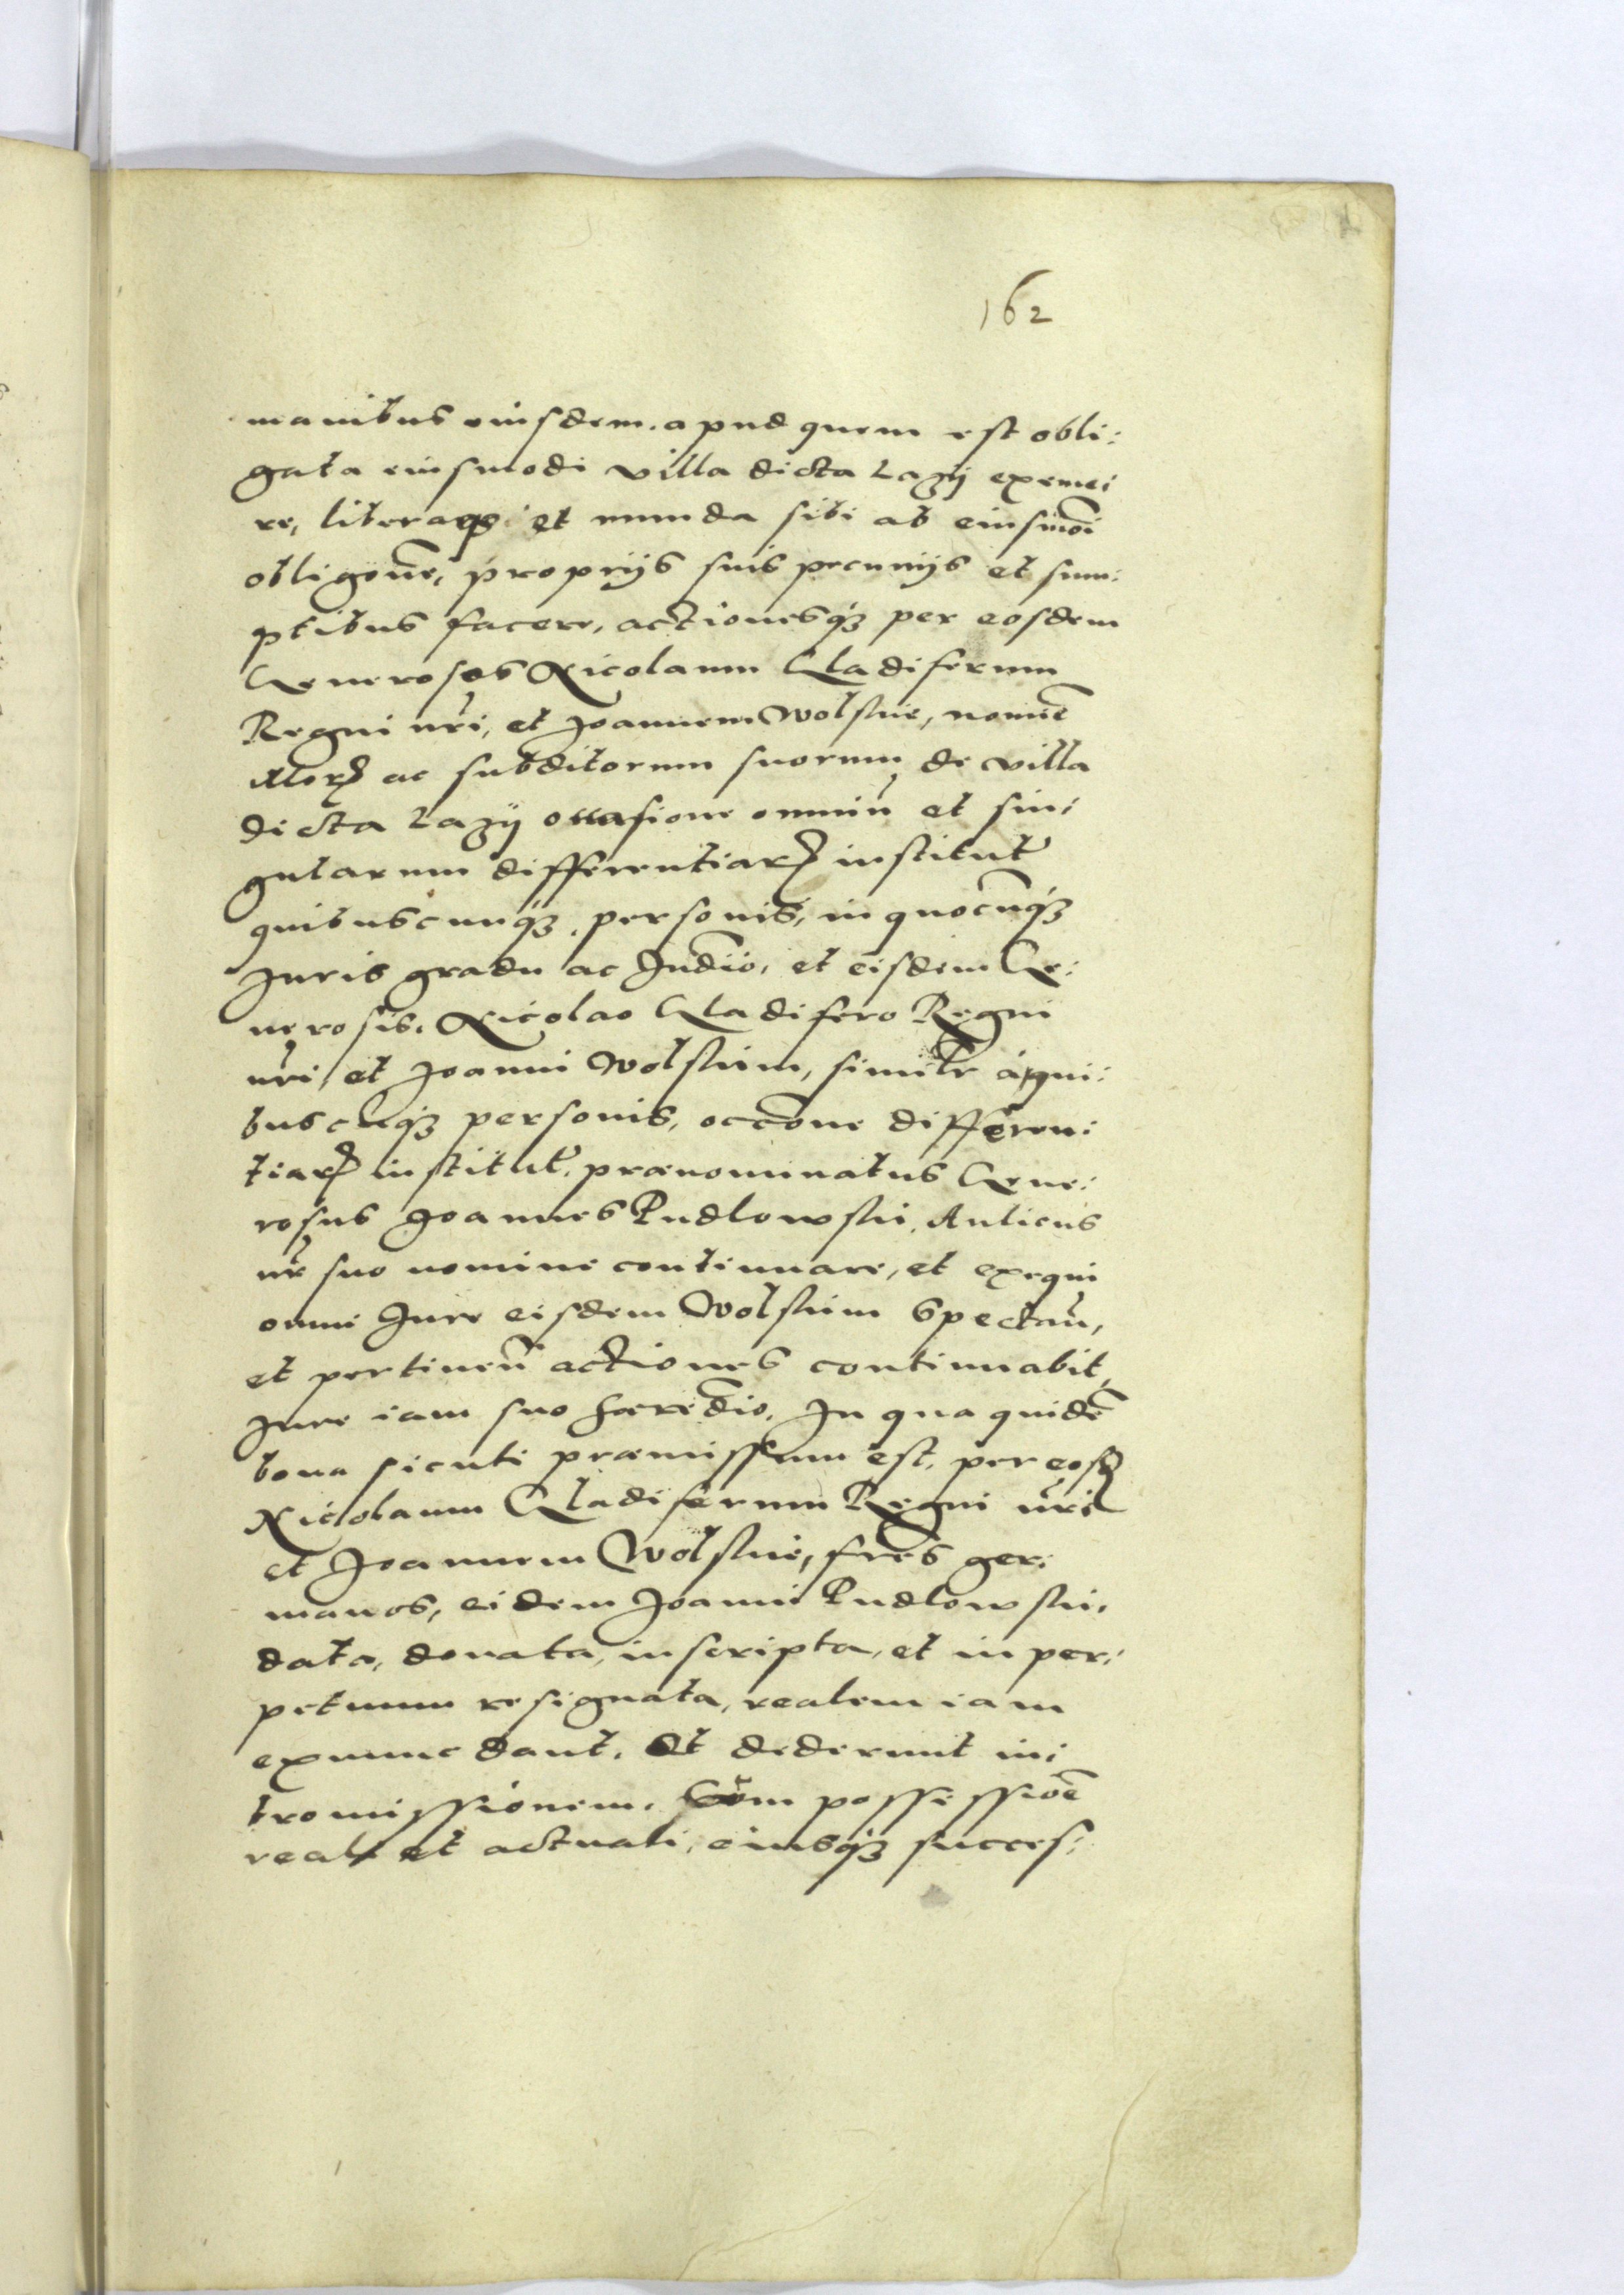 162
manibus eiusdem. apud quem est obli:
gata eiusmodi villa dicta Lazÿ exime:
re, liberaqȝ et munda sibi ab eiusmoi
obligone, proprijs suis pecunijs et sum:
ptibus facere, actionesqȝ per eosdem
Generosos Nicolaum Gladiferum
Regni nri, et Joannem Wolskie, nomine
illorȝ ac subditorum suorum de villa
dicta Lazÿ occasione omniu et sin:
gularum differentiarȝ institut
quibuscunqȝ. personis, in quocunqȝ
Juris gradu ac Judiio, et eisdem Ge:
nerosis. Nicolao Gladifero Regni
nri, et Joanni Wolskim, similr á qui:
buscuqȝ personis, occone differen:
tiarȝ institut. prænominatus Gene:
rosus Joannes Pudlowski. Aulicus
nr suo nomine continuare, et exequi
omni Jure eisdem Wolskim spectan,
et pertinen actiones continuabit,
Jure iam suo hæredio. In qua quide
bona sicuti præmissum est. per eosd
Nicolaum Gladiferum Regni nri
et Joannem Wolskie, fres ger:
manos, eidem Joanni Pudlowski.
data, donata, inscripta, et in per:
petuum resignata, realem iam
exnunc dant. Et dederunt in:
tromissionem. Cum possessioe
reali et actuali, eiusqȝ succes: